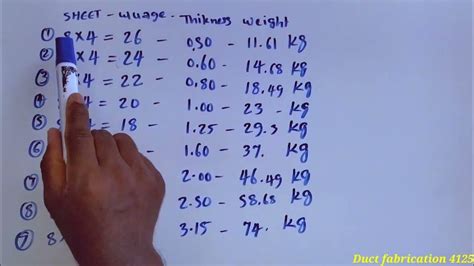 SHEET - Guage - Thikness weight
① 8×4 = 26 - 0.50 - 11.61 kg
② × 4 = 24 - 0.60 - 14.68 kg
③ 4 = 22 - 0.80 - 18.49 kg
④ 4 = 20 - 1.00 - 23 kg
⑤ 8 4 = 18 - 1.25 - 29.3 kg
⑥ - 1.60 - 37. kg
⑦ 2.00 - 46.49 kg
⑧ 2.50 - 58.68 kg
⑦ 8× 3.15 - 74. kg
Duct fabrication 4123